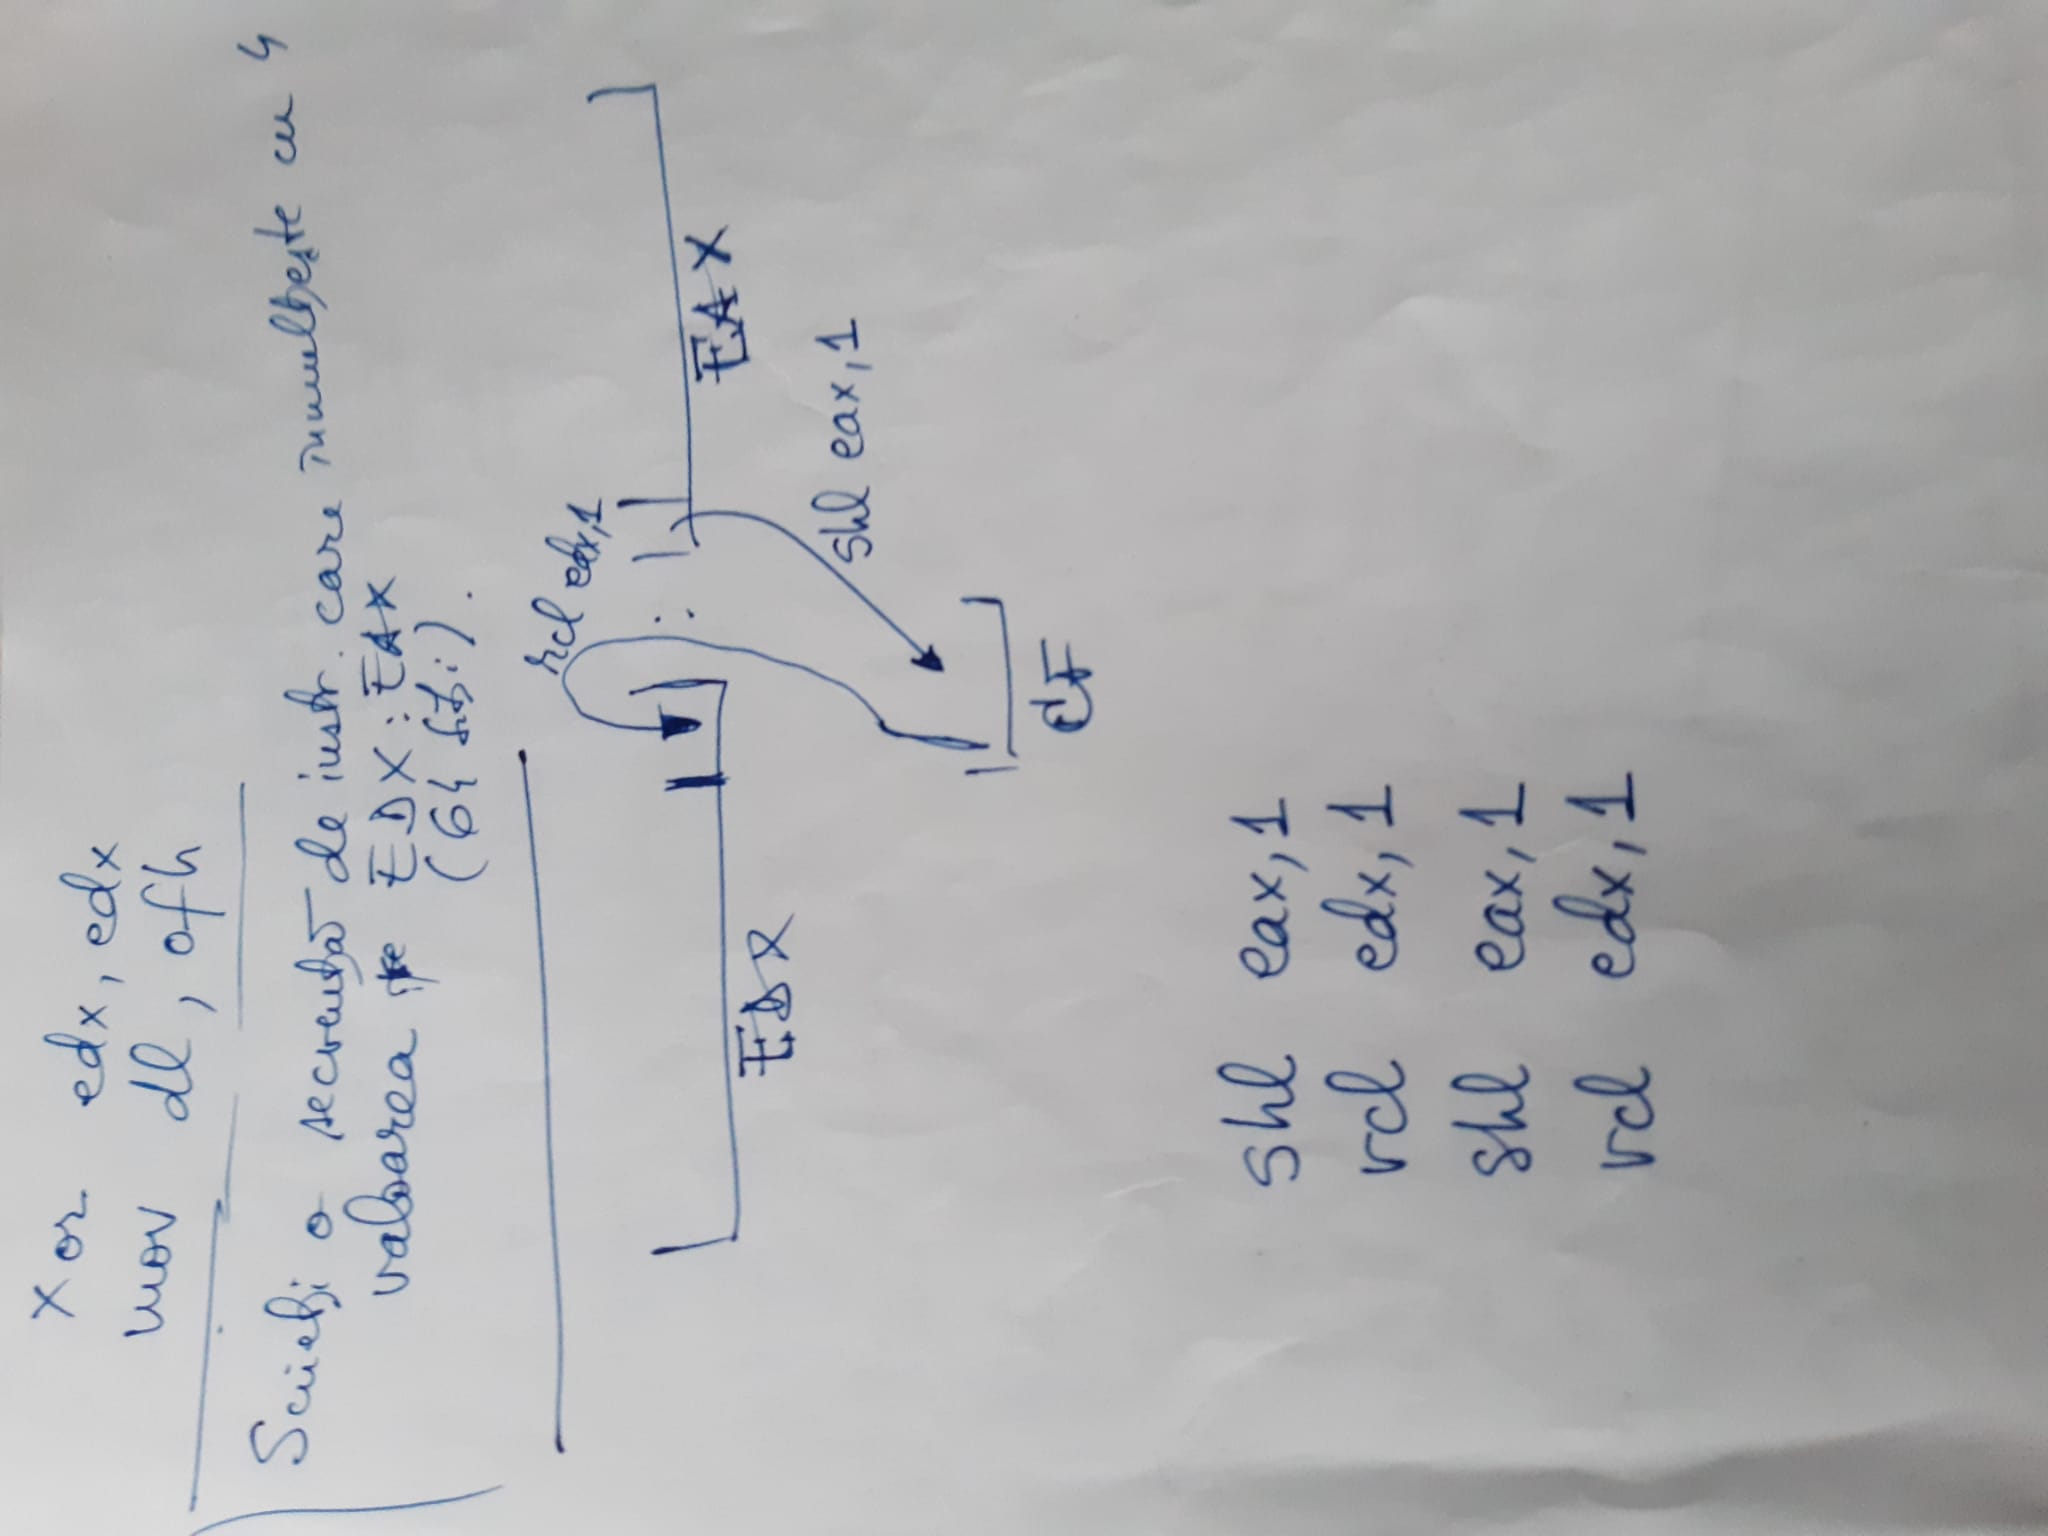 xor edx, edx
mov dl, 0fh
Scrieți o secvență de instr. care înmulțește cu 4
valoarea EDX:EAX
(64 biți).
rcl edx,1
:
EDX
EAX
shl eax,1
CF
shl eax,1
rcl edx,1
shl eax,1
rcl edx,1